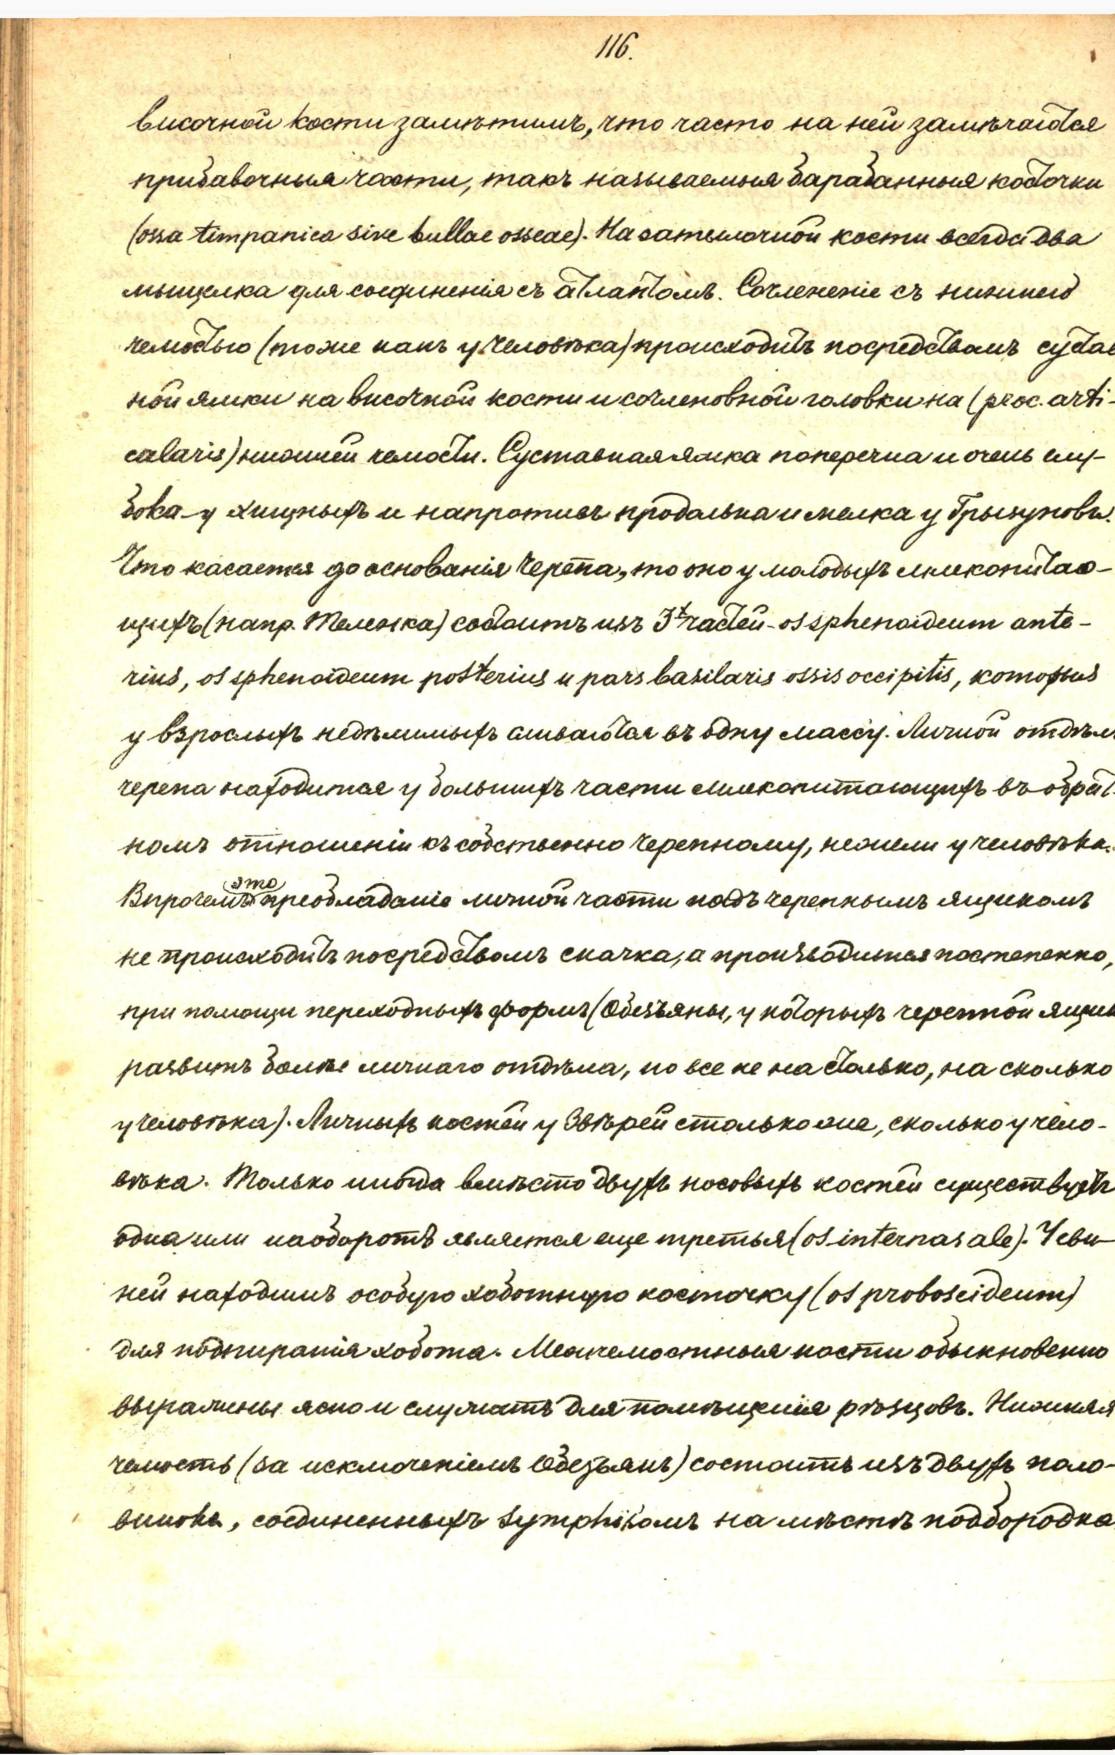 116.
височной кости замѣтимъ, что часто на ней замѣчаются
прибавочныя части, такъ называемыя барабанныя косточки
(ossa timpanica sive bullae osseae). На затылочной кости всегда два
мыщелка для соединенія съ атлантомъ. Сочлененіе съ нижнею
челюстью (тоже какъ у человѣка) происходитъ посредствомъ сустав
ной ямки на височной кости и сочленовной головки на (proc. arti-
calaris) нижней челюсти. Суставная ямка поперечна и очень глу-
бока у хищныхъ и напротивъ продольна и мелка у Грызуновъ.
Что касается до основанія черепа, то оно у молодыхъ млекопитаю-
щихъ (напр. теленка) состоитъ изъ 3х частей - os sphenoideum ante-
rius, os sphenoideum posterius и pars basilaris ossis occipitis, которыя
у взрослыхъ недѣлимыхъ сливаются въ одну массу. Личной отдѣлъ
черепа находится у большихъ части млекопитающихъ въ обрат-
номъ отношеніи къ собственно черепному, нежели у человѣка.
Впрочемъ это преобладаніе личной части надъ черепнымъ ящикомъ
не происходитъ посредствомъ скачка, а производится постепенно,
при помощи переходныхъ формъ (Обезьяны, у которыхъ черепной ящик
развитъ болѣе личнаго отдѣла, но все не на столько, на сколько
у человѣка). Личныхъ костей у Звѣрей столько же, сколько у чело-
вѣка. Только иногда вмѣсто двухъ носовыхъ костей существуетъ
одна или наоборотъ является еще третья (os internasale). У сви-
ней находимъ особую хоботную косточку (os proboscideum)
для подпиранія хобота. Межчелюстныя кости обыкновенно
выражены ясно и служатъ для помѣщенія рѣзцовъ. Нижняя
челюсть (за исключеніемъ Обезьянъ) состоитъ изъ двухъ поло-
виновъ, соединенныхъ symphiзомъ на мѣстѣ подбородка